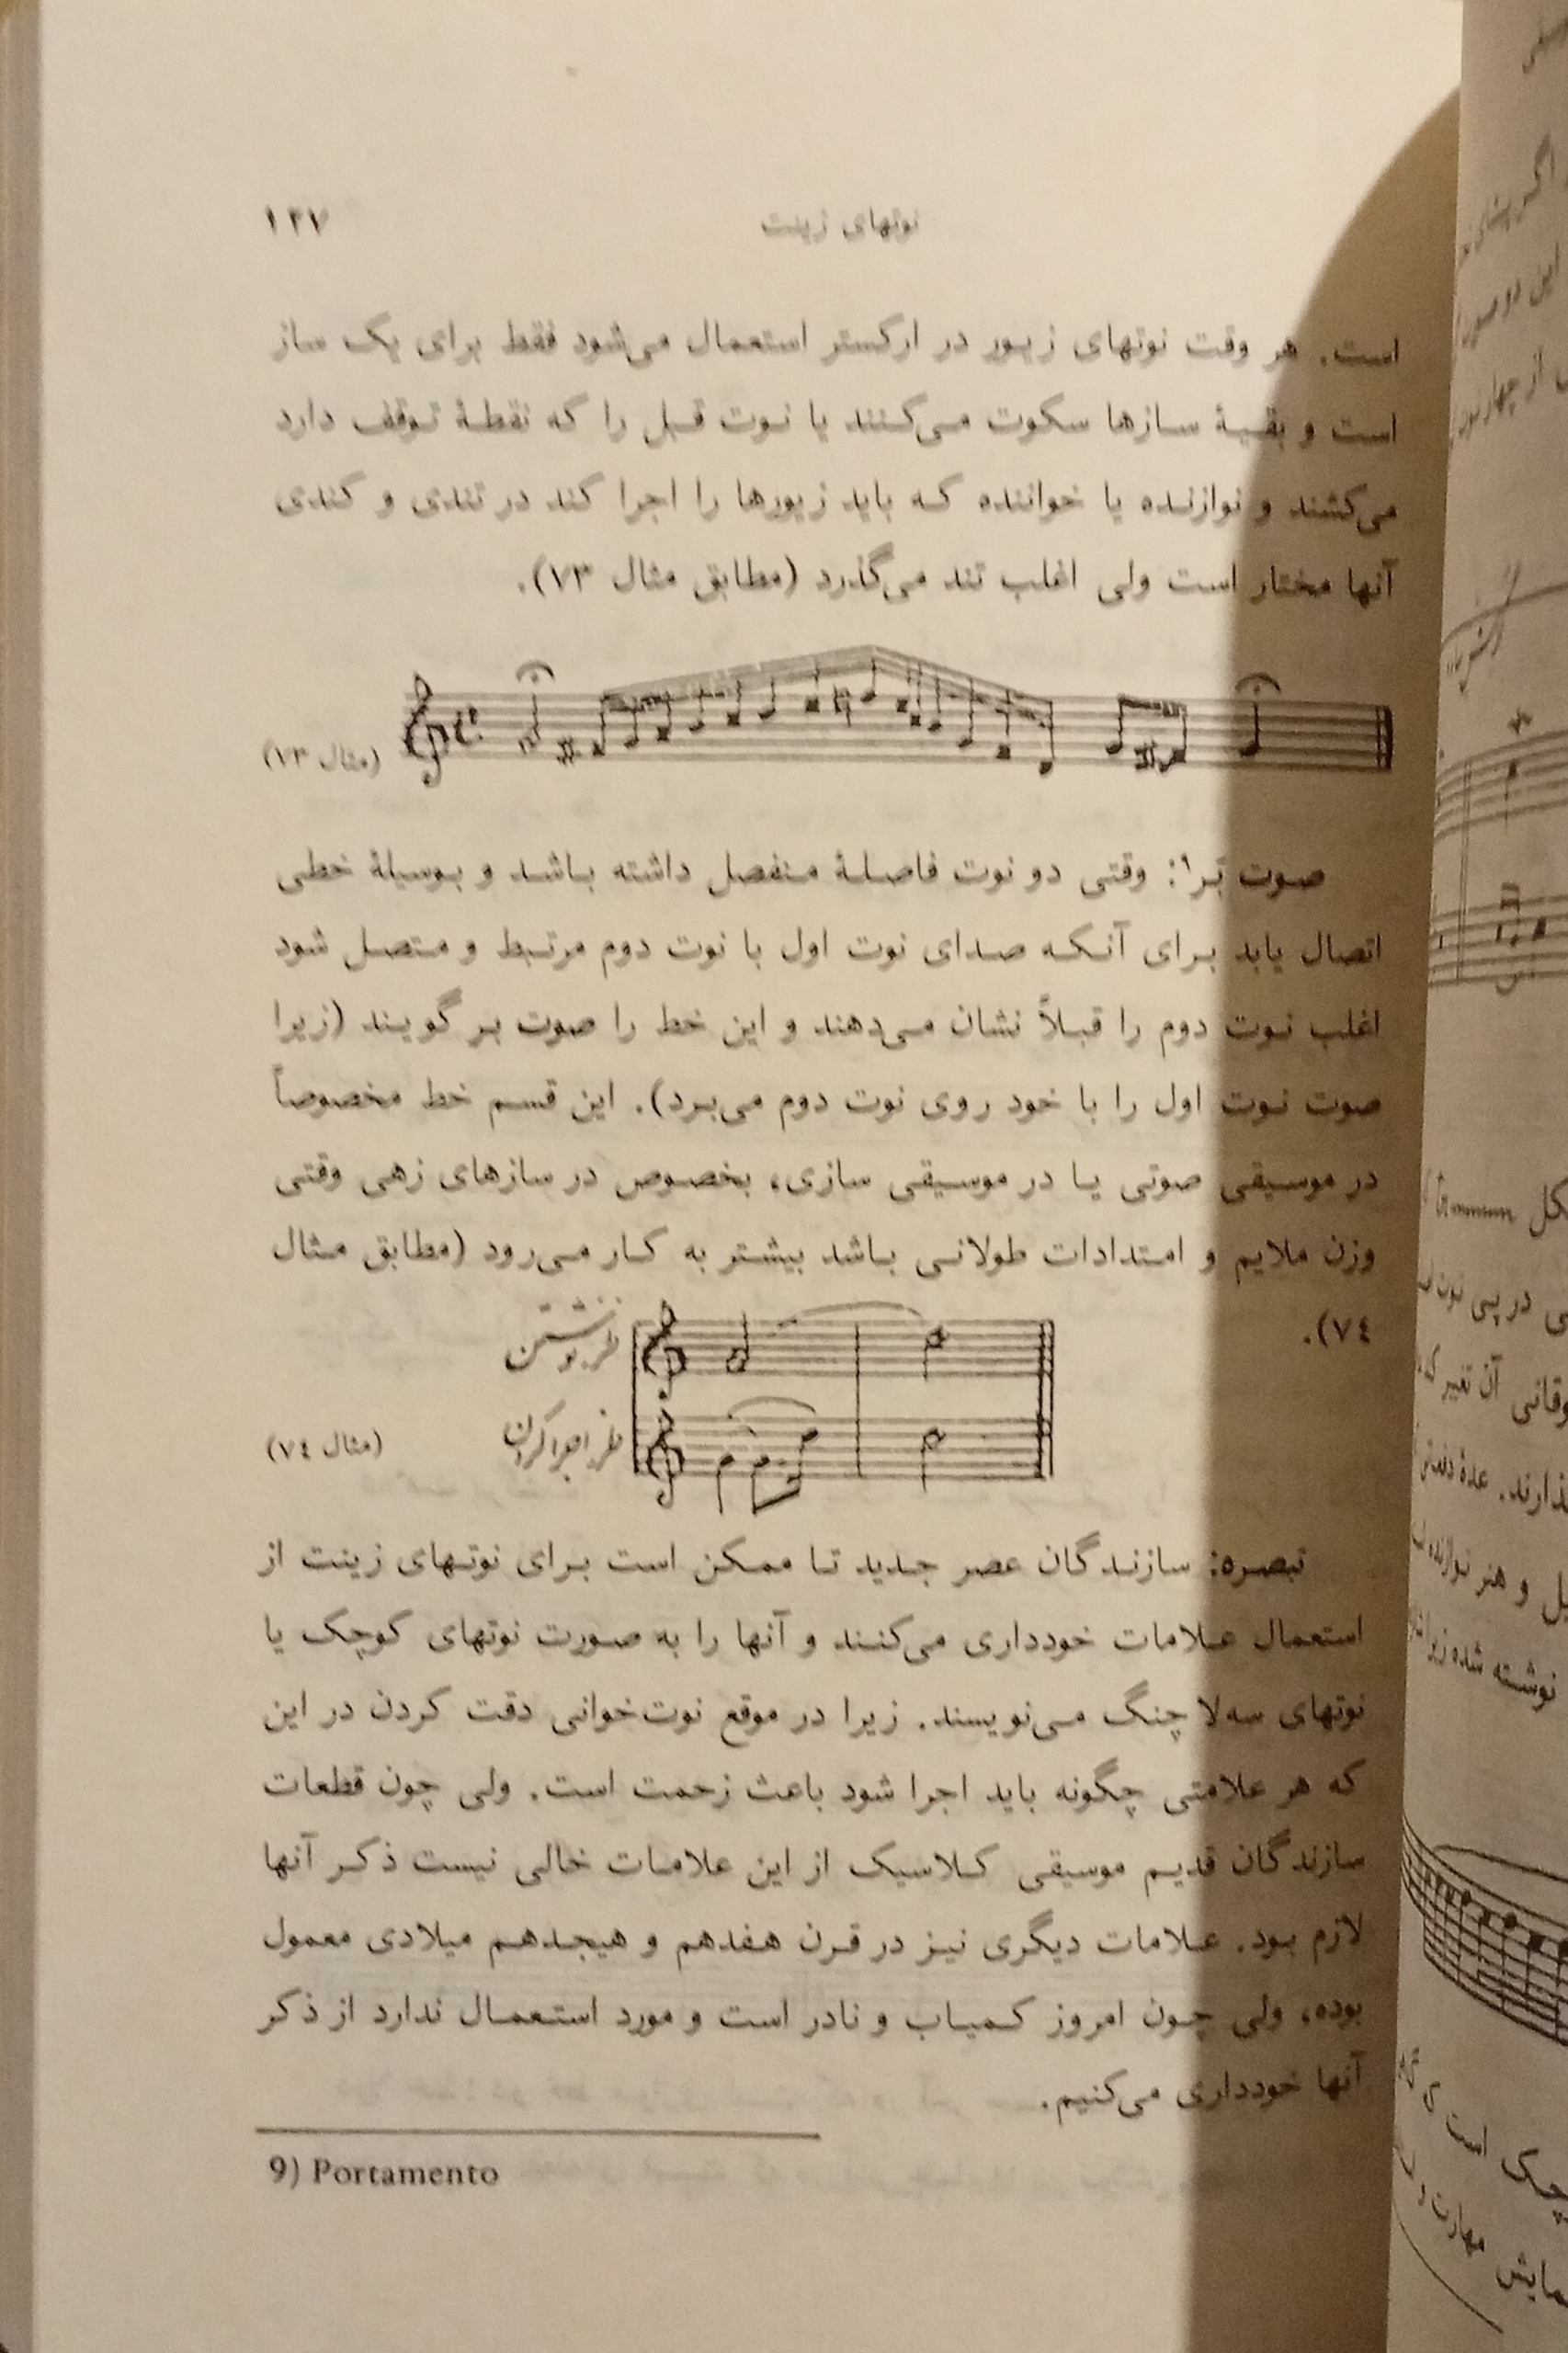 نوتهای زینت
۱۲۷
است. هر وقت نوتهای زیور در ارکستر استعمال می‌شود فقط برای یک ساز
است و بقیهٔ سازها سکوت می‌کنند یا نوت قبل را که نقطهٔ توقف دارد
می‌کشند و نوازنده یا خواننده که باید زیورها را اجرا کند در تندی و کندی
آنها مختار است ولی اغلب تند می‌گذرد (مطابق مثال ۷۳).
(مثال ۷۳)
صوت بَر۹: وقتی دو نوت فاصلهٔ منفصل داشته باشد و بوسیلهٔ خطی
اتصال یابد برای آنکه صدای نوت اول با نوت دوم مرتبط و متصل شود
اغلب نوت دوم را قبلاً نشان می‌دهند و این خط را صوت بر گویند (زیرا
صوت نوت اول را با خود روی نوت دوم می‌برد). این قسم خط مخصوصاً
در موسیقی صوتی یا در موسیقی سازی، بخصوص در سازهای زهی وقتی
وزن ملایم و امتدادات طولانی باشد بیشتر به کار می‌رود (مطابق مثال
۷٤).
طرز نوشتن
طرز اجرا کردن
(مثال ۷٤)
تبصره: سازندگان عصر جدید تا ممکن است برای نوتهای زینت از
استعمال علامات خودداری می‌کنند و آنها را به صورت نوتهای کوچک یا
نوتهای سه‌لا چنگ می‌نویسند. زیرا در موقع نوت‌خوانی دقت کردن در این
که هر علامتی چگونه باید اجرا شود باعث زحمت است. ولی چون قطعات
سازندگان قدیم موسیقی کلاسیک از این علامات خالی نیست ذکر آنها
لازم بود. علامات دیگری نیز در قرن هفدهم و هیجدهم میلادی معمول
بوده، ولی چون امروز کمیاب و نادر است و مورد استعمال ندارد از ذکر
آنها خودداری می‌کنیم.
9) Portamento